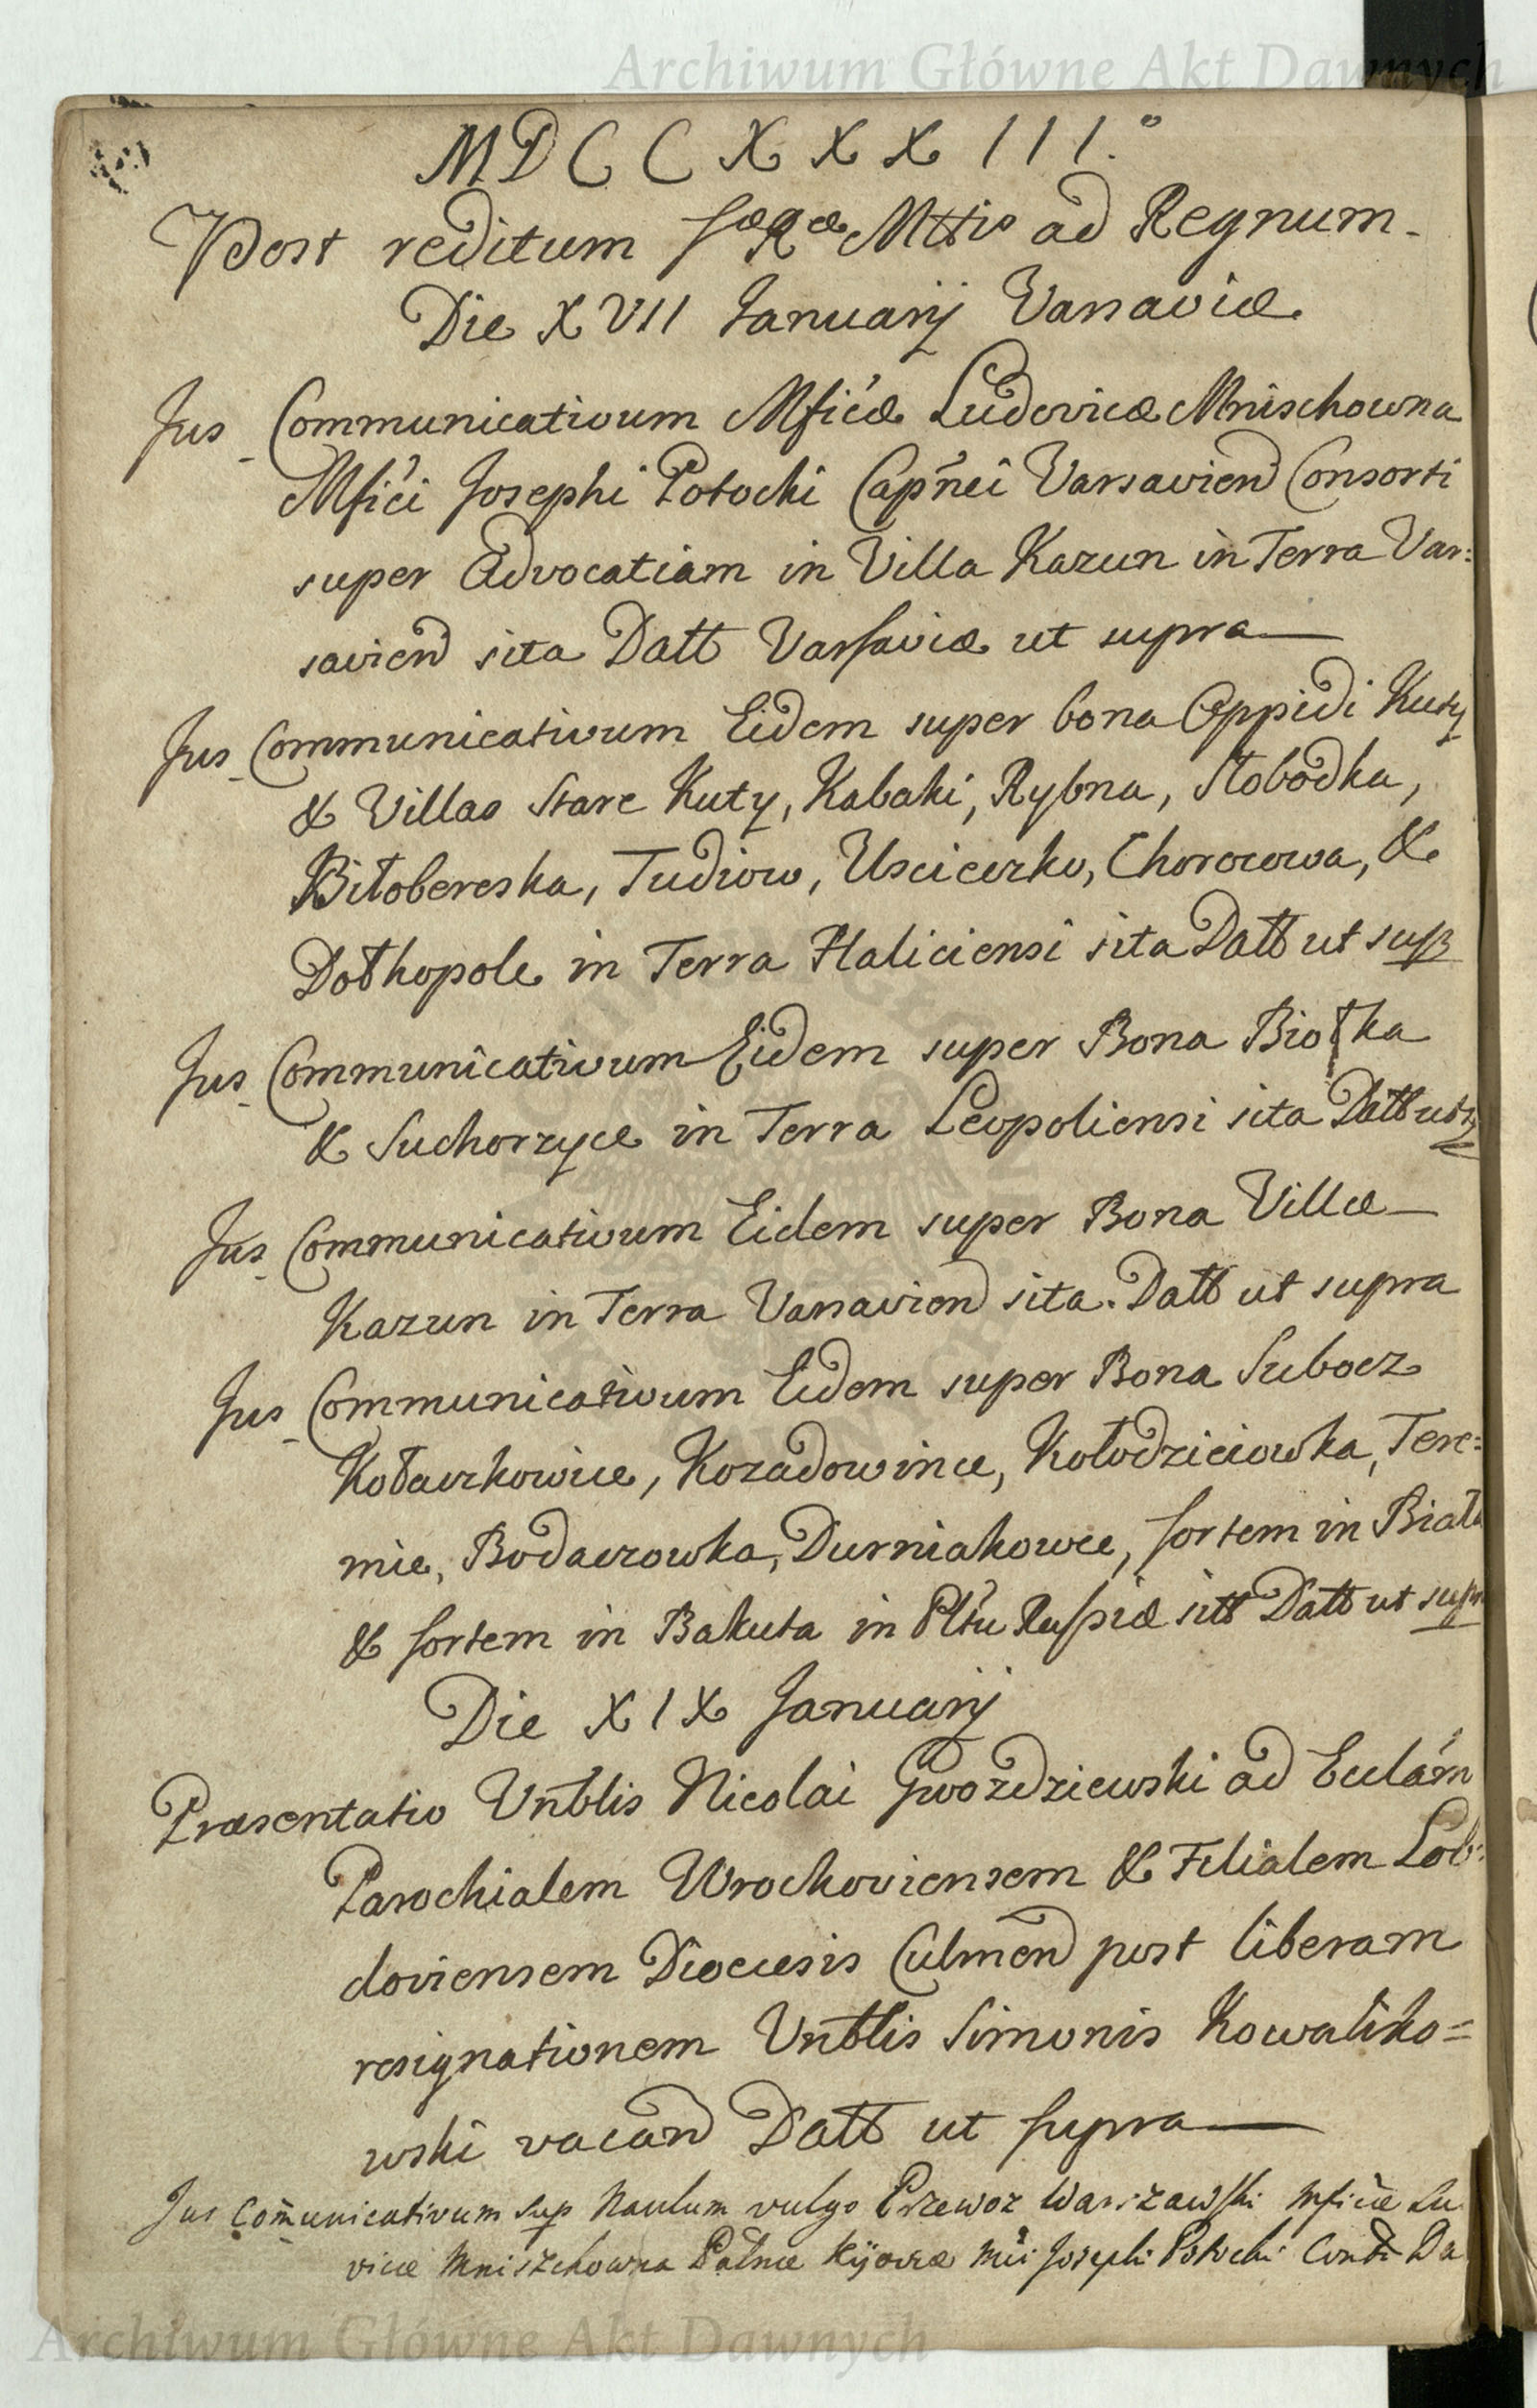 Archiwum Główne Akt Dawnych
MDCCXXXIII.º
Post reditum SæRæ Mttis ad Regnum.
Die XVII Januarij Varsaviæ
Jus Communicativum Mficæ Ludovicæ Mnischowna
Mfici Josephi Potocki Capnei Varsavien Consorti
super Advocatiam in Villa Kazun in Terra Var:
savien sita Datt Varsaviæ ut supra
Jus Communicativum Eidem super bona Oppidi Kuty
& Villas Stare Kuty, Kabaki, Rybna, Słobodka,
Biłobereska, Tudiow, Uscieczko, Chorocowa, &
Dołhopole in Terra Haliciensi sita Datt ut sup
Jus Communicativum Eidem super Bona Biołka
& Suchorzyce in Terra Leopoliensi sita Datt ut
Jus Communicativum Eidem super Bona Villæ
Kazun in Terra Varsavien sita. Datt ut supra
Jus Communicativum Eidem super Bona Subocz
Kołaczkowice, Kozadowince, Kołodzieiowka, Tere=
mie, Bodaczowka, Durniakowce, sortem in Biała
& sortem in Bakuta in Pltu Russiæ sitt Datt ut supr
Die XIX Januarij
Præsentatio Vnblis Nicolai Gwozdziewski ad Ecclam
Parochialem Wrockoviensem & Filialem Lob:
doviensem Diocesis Culmen post liberam
resignationem Vnblis Simonis Kowalko=
wski vacan Datt ut supra
Jus Comunicativum sup Naulum vulgo Przewoz Warszawski Mficæ Lu
vicæ Mniszchowna Palnæ Kijoviæ Mci Josephi Potocki Da
Archiwum Główne Akt Dawnych